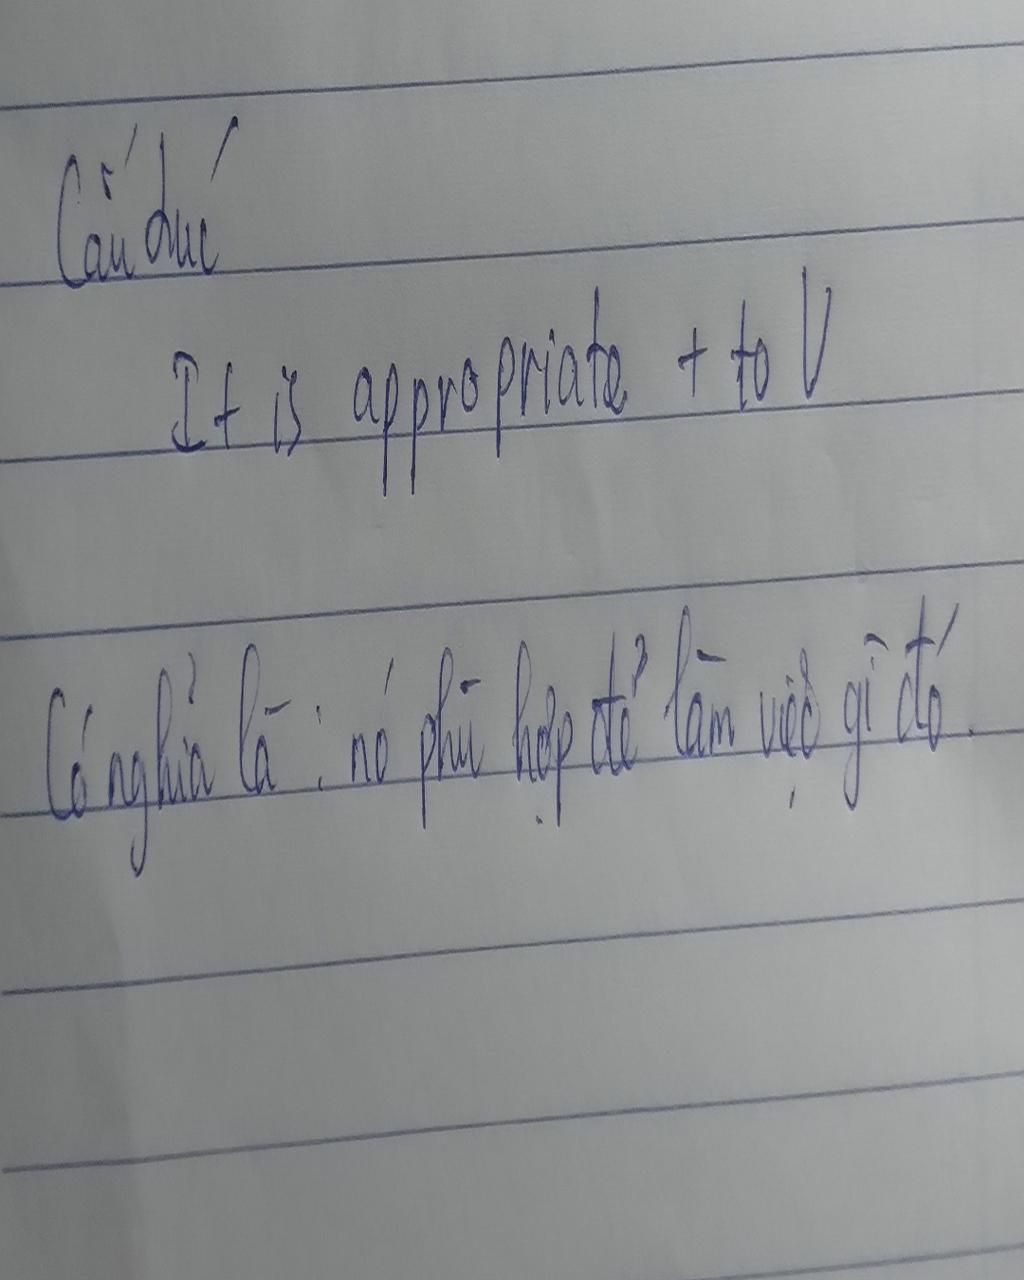 Cấu trúc
It is appropriate + to V
Có nghĩa là : nó phù hợp để làm việc gì đó.